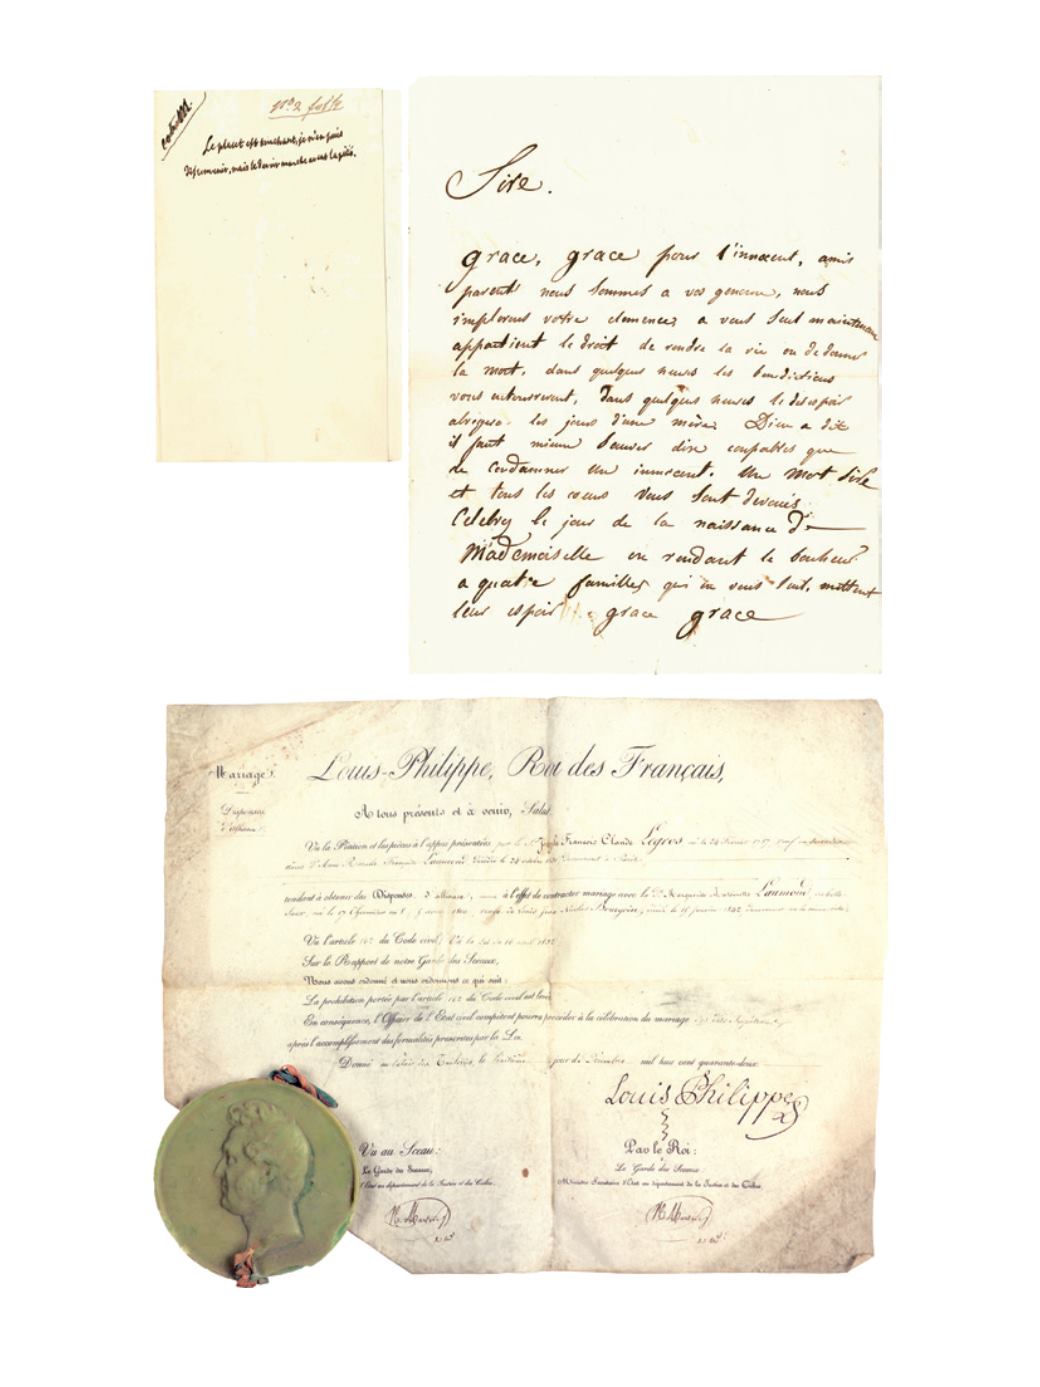 cabr M.
N° 2
Le placet est touchant, je n'en puis
disconvenir, mais le devoir marche avant la pitié.
Sire.
grace, grace pour l'innocent, amis
parents nous sommes a vos genoux, nous
implorons votre clemence, a vous seul maintenan
appartient le droit de rendre la vie ou de donner
la mort, dans quelques heures les benedictions
vous entourreront, dans quelques heures le desespoir
abregera les jours d'une mère. Dieu a dit
il faut mieux sauver dix coupables que
de condamner un innocent. Un mot Sire
et tous les cœurs vous sont devoués
Celebrez le jour de la naissance de
Mademoiselle en rendant le bonheur
a quatre familles qui en vous seul, mettent
leur espoir grace grace
Mariage.
Dispense
d'alliance.
Louis-Philippe, Roi des Français,
A tous présents et à venir, Salut.
Vu la Pétition et les pièces à l'appui présentées par le Sr. Joseph François Claude Legros né le 24 Février 1787, veuf en
dame Françoise Laumond décédée le 24 octobre demeurant à Paris.
tendant à obtenir des Dispenses d'alliance, à l'effet de contracter mariage avec la De. Marguerite Laumond, sa belle
sœur, née le 17 veuve de Louis Jean Nicolas Bourgoin, décédé le 15 janvier 1842
Vu l'article 162 du Code civil; Vu la Loi du 16 avril 1832;
Sur le Rapport de notre Garde des Sceaux,
Nous avons ordonné et nous ordonnons ce qui suit:
La prohibition portée par l'article 162 du Code civil est levée
En conséquence, l'Officier de l'Etat civil compétent pourra procéder à la célébration du mariage
après l'accomplissement des formalités prescrites par la Loi.
Donné au Palais des Tuileries, le jour de Décembre mil huit cent quarante-deux.
Louis Philippe
Vu au Sceau:
Le Garde des Sceaux,
d'Etat au département de la Justice et des Cultes,
Par le Roi:
Le Garde des Sceaux
Ministre Secrétaire d'Etat au département de la Justice et des Cultes,